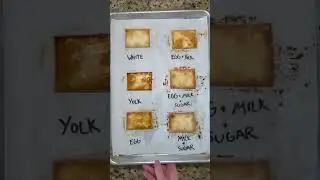 WHITE
EGG + MILK
YOLK
EGG + MILK
+
SUGAR
EGG
MILK
+
SUGAR
YOLK
EGG + MILK
+
SUGAR